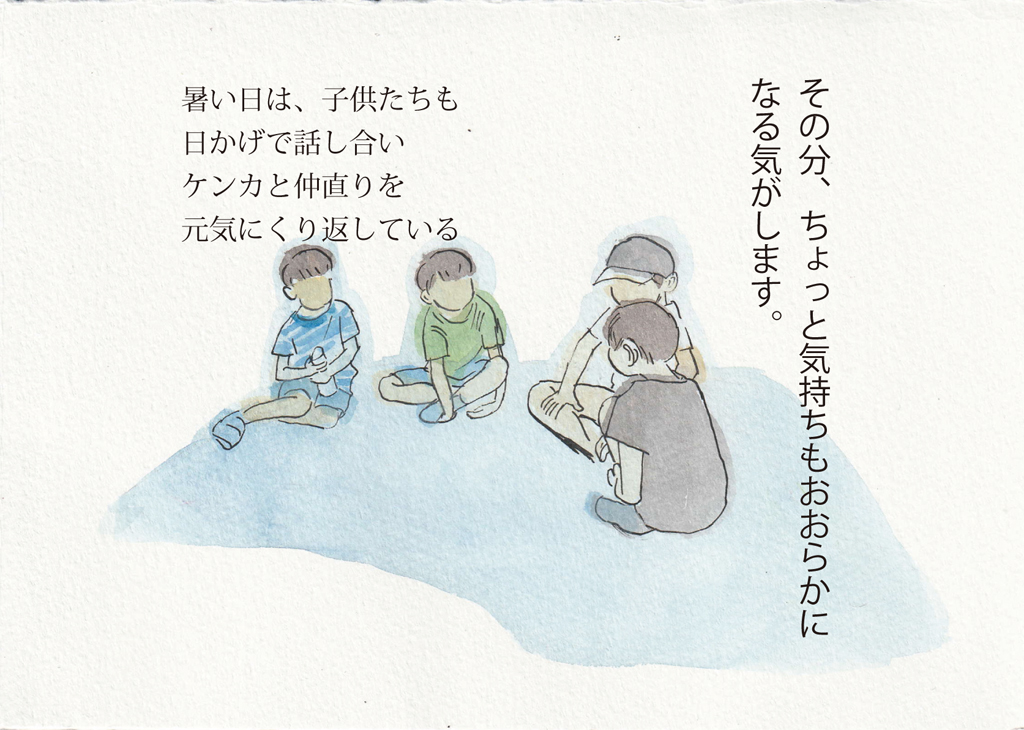 暑い日は、子供たちも
日かげで話し合い
ケンカと仲直りを
元気にくり返している
その分、ちょっと気持ちもおおらかに
なる気がします。